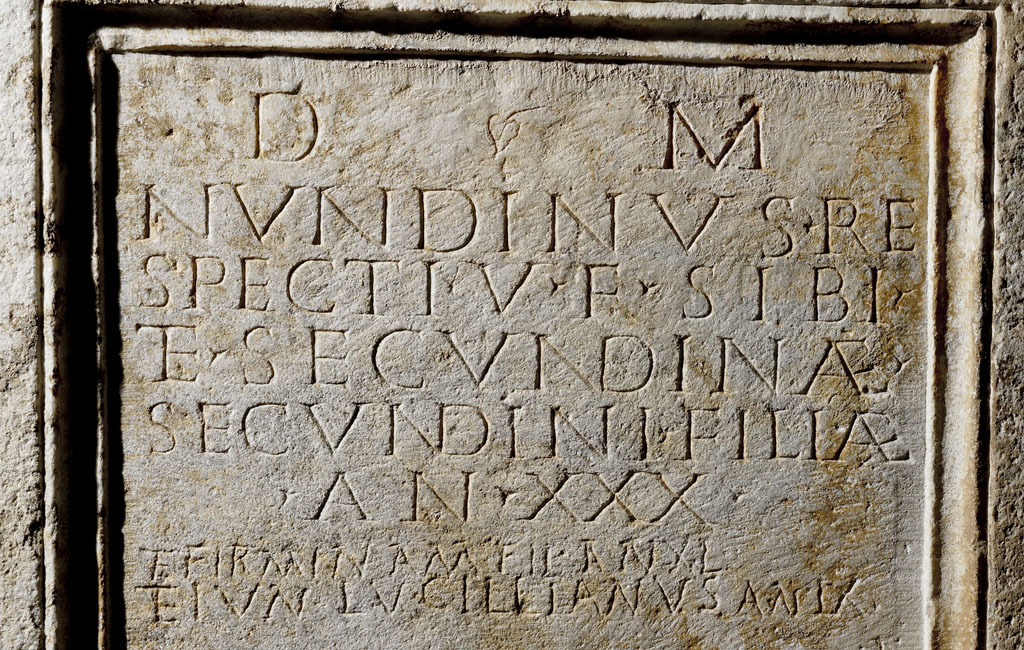 D M
NVNDINVS·RE
SPECTI·V·F·SIBI·
ET·SECVNDINAE·
SECVNDINI·FILIAE
·AN·XXX
ET FIRMINVAM FIL ANN XL
ET IVN LVCILLIANVS AN LX